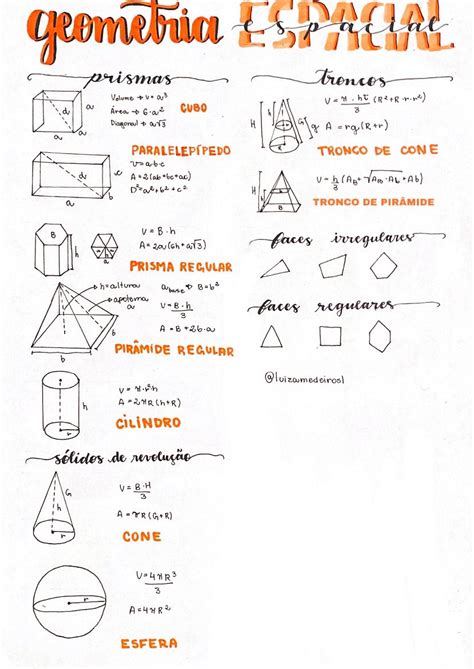 geometria ESPACIAL
espacial
prismas
a
d
a
a
Volume → V = a³
Área → 6·a²
Diagonal → a√3
CUBO
PARALELEPÍPEDO
d
c
b
a
V = a·b·c
A = 2(ab+bc+ac)
D² = a²+b²+c²
B
h
a
V = B·h
A = 2a(6h+a√3)
PRISMA REGULAR
h = altura
apotema
a
b
b
a base → B = b²
V = B·h
3
A = B + 2b·a
PIRÂMIDE REGULAR
h
r
V = π·r²h
A = 2πR(h+R)
CILINDRO
sólidos de revolução
G
h
r
V = B·H
3
A = πR(G+R)
CONE
r
V = 4πR³
3
A = 4πR²
ESFERA
troncos
H
h
r
R
g
V = π·ht (R²+R·r·r²)
3
A = πg(R+r)
TRONCO DE CONE
H
h
b
B
V = h (AB+√AB·Ab+Ab)
3
TRONCO DE PIRÂMIDE
faces irregulares
faces regulares
@luizamedeiros1